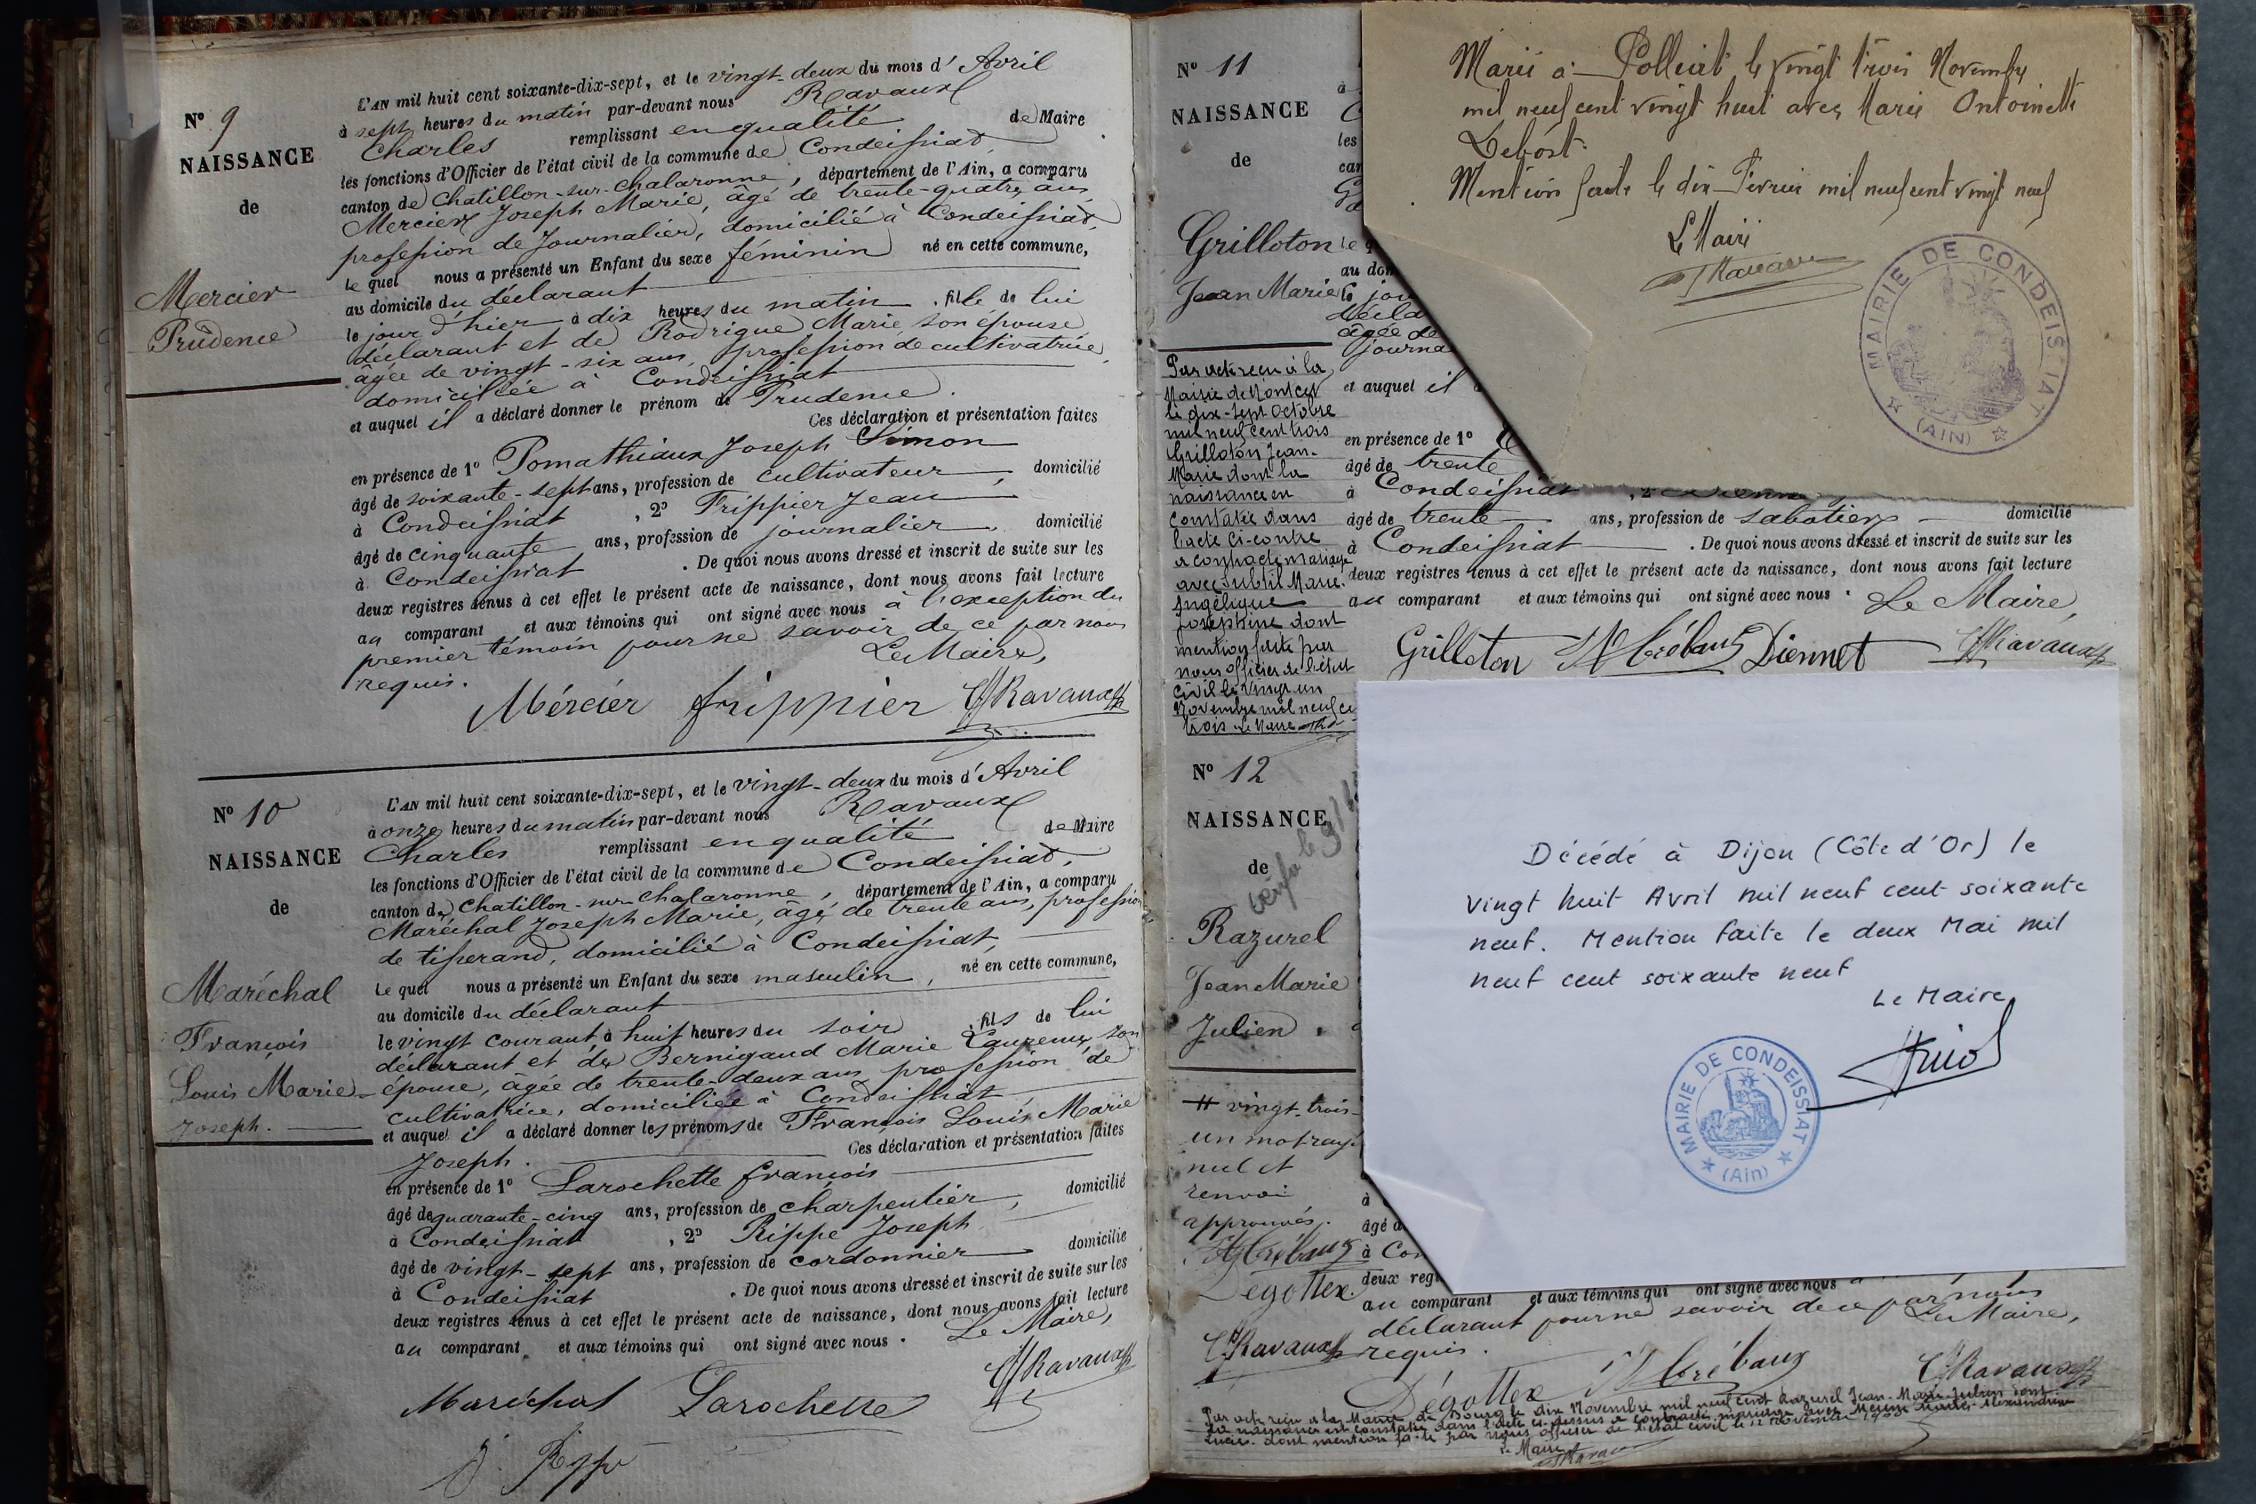 N° 9
NAISSANCE
de
Mercier
Prudence
L'AN mil huit cent soixante-dix-sept, et le vingt-deux du mois d'Avril
à sept heures du matin par-devant nous Ravaux
Charles remplissant en qualité de Maire
les fonctions d'Officier de l'état civil de la commune de Condeissiat,
canton de Chatillon-sur-Chalaronne, département de l'Ain, a comparu
Mercier Joseph Marie, âgé de trente-quatre ans
profession de Journalier, domicilié à Condeissiat,
le quel nous a présenté un Enfant du sexe féminin né en cette commune,
au domicile du déclarant
le jour d'hier à dix heures du matin, fille de lui
déclarant et de Rodrigue Marie, son épouse
âgée de vingt-six ans, profession de cultivatrice,
domiciliée à Condeissiat
et auquel il a déclaré donner le prénom de Prudence.
Ces déclaration et présentation faites
en présence de 1° Pomathiaux Joseph Simon
âgé de soixante-sept ans, profession de cultivateur, domicilié
à Condeissiat, 2° Frippier Jean
âgé de cinquante ans, profession de journalier domicilié
à Condeissiat. De quoi nous avons dressé et inscrit de suite sur les
deux registres tenus à cet effet le présent acte de naissance, dont nous avons fait lecture
au comparant et aux témoins qui ont signé avec nous à l'exception du
premier témoin pour ne savoir de ce par nous
requis. Le Maire,
Mércier frippier Ravaux
N° 10
NAISSANCE
de
Maréchal
François
Louis Marie
Joseph.
L'AN mil huit cent soixante-dix-sept, et le vingt-deux du mois d'Avril
à onze heures du matin par-devant nous Ravaux
Charles remplissant en qualité de Maire
les fonctions d'Officier de l'état civil de la commune de Condeissiat,
canton de Chatillon-sur-Chalaronne, département de l'Ain, a comparu
Maréchal Joseph Marie, âgé de trente ans, profession
de tisserand, domicilié à Condeissiat,
le quel nous a présenté un Enfant du sexe masculin, né en cette commune,
au domicile du déclarant
le vingt courant à huit heures du soir, fils de lui
déclarant et de Bernigaud Marie Laurence, son
épouse, âgée de trente-deux ans profession de
cultivatrice, domiciliée à Condeissiat
et auquel il a déclaré donner les prénoms de François Louis Marie
Joseph. Ces déclaration et présentation faites
en présence de 1° Larochette françois
âgé de quarante-cinq ans, profession de charpentier, domicilié
à Condeissiat, 2° Rippe Joseph
âgé de vingt-sept ans, profession de cordonnier domicilié
à Condeissiat. De quoi nous avons dressé et inscrit de suite sur les
deux registres tenus à cet effet le présent acte de naissance, dont nous avons fait lecture
au comparant et aux témoins qui ont signé avec nous. Le Maire,
Maréchal Larochette Ravaux
N° 11
NAISSANCE
de
Grilloton
Jean Marie
Par acte reçu à la
Mairie de Montcet
le dix-sept Octobre
mil neuf cent trois
Grilloton Jean-
Marie dont la
naissance est
constatée dans
l'acte ci-contre
a contracté mariage
avec Subtil Marie
Angélique
Joséphine dont
mention faite par
nous officier de l'état
civil le vingt un
Novembre mil neuf ce
trois Le Maire
à
les
can
le
au dom
le jou
décla
âgée de
journa
et auquel il
en présence de 1°
âgé de trente
à Condeissiat
âgé de trente ans, profession de sabotier domicilié
à Condeissiat. De quoi nous avons dressé et inscrit de suite sur les
deux registres tenus à cet effet le présent acte de naissance, dont nous avons fait lecture
au comparant et aux témoins qui ont signé avec nous. Le Maire,
Grilloton Trébaux Diennet Ravaux
Marié à Polliat le vingt trois Novembre
mil neuf cent vingt huit avec Marie Antoinette
Debost.
Mention faite le dix Février mil neuf cent vingt neuf
Le Maire
MAIRIE DE CONDEISSIAT
(AIN)
N° 12
NAISSANCE
de
Razurel
Jean Marie
Julien.
vingt-trois
un mot rayé
nul et
renvoi
approuvés.
Trébaux
Dégottex
Ravaux
Décédé à Dijon (Côte d'Or) le
vingt huit Avril mil neuf cent soixante
neuf. Mention faite le deux Mai mil
neuf cent soixante neuf
Le Maire
MAIRIE DE CONDEISSIAT
(Ain)
à
âgé d
à Con
deux regi
au comparant et aux témoins qui ont signé avec nous
déclarant pour ne savoir de ce par nous
requis. Le Maire,
Dégottex Trébaux Ravaux
Par acte reçu à la Mairie de Bourg le dix Novembre mil neuf cent Razurel Jean-Marie-Julien dont
la naissance est constatée dans l'acte ci-dessus a contracté mariage avec
Lucie dont mention faite par nous officier de l'état civil le 12 Novembre 1900
Le Maire